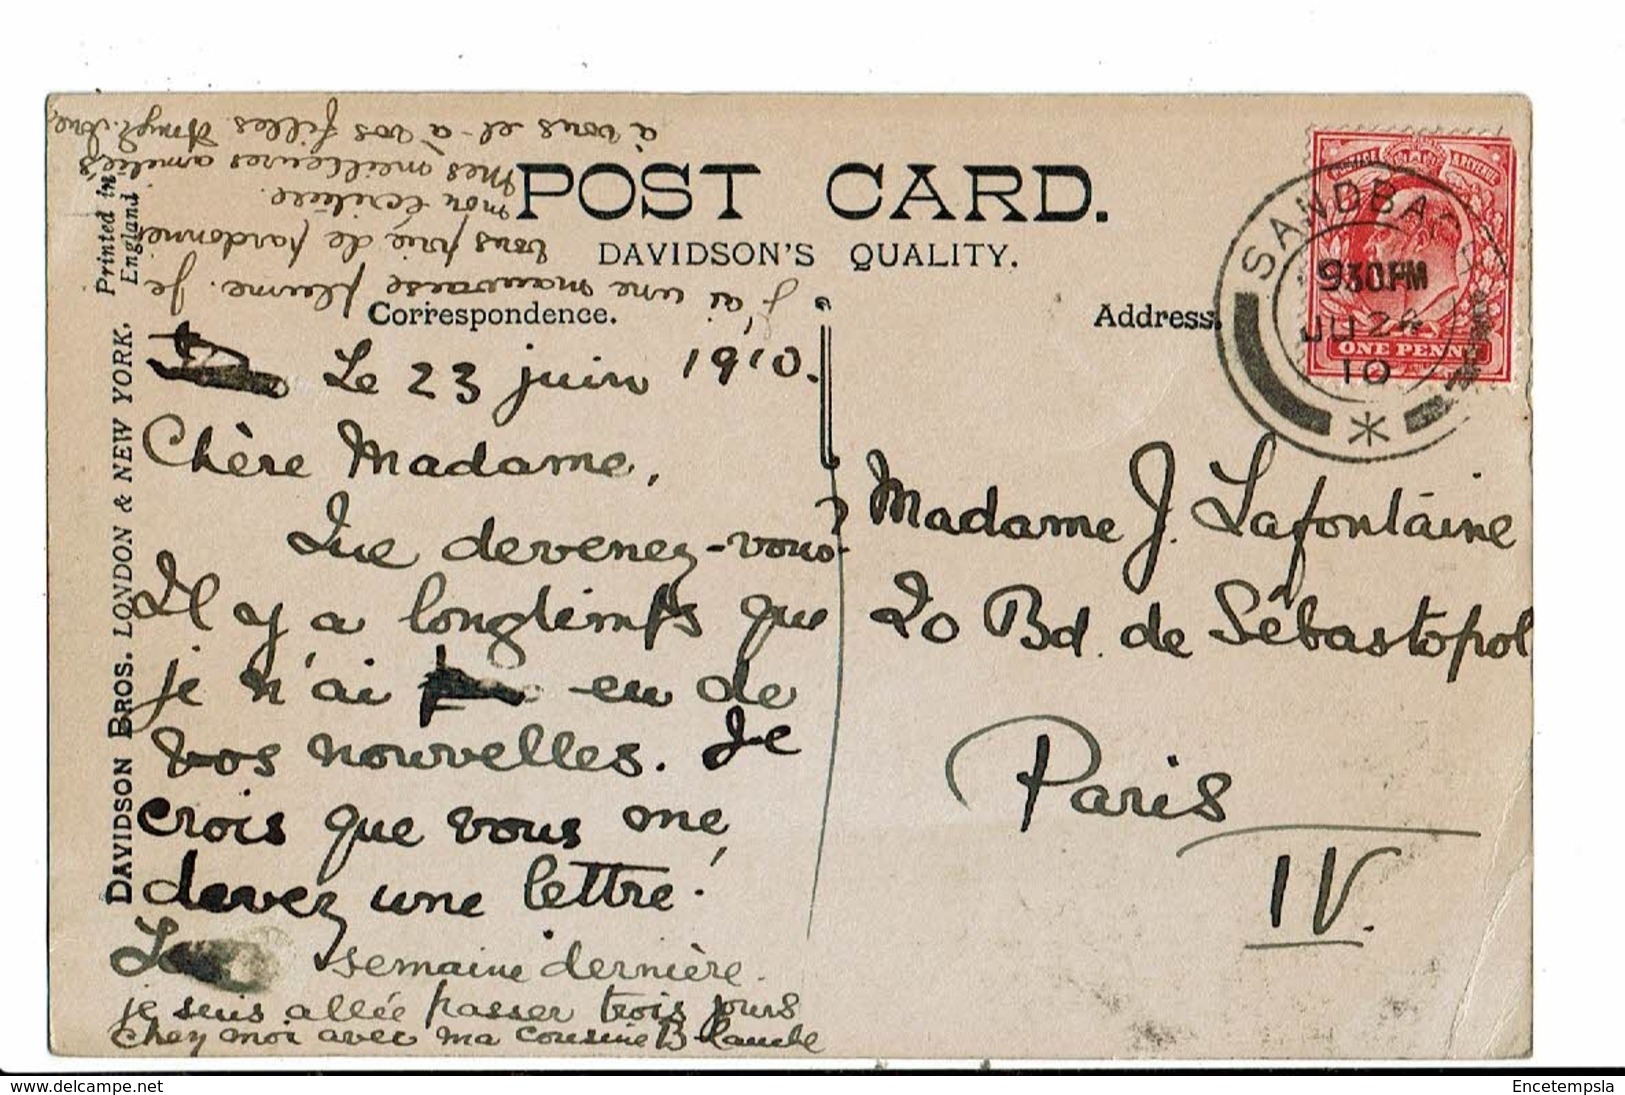 POST CARD.
DAVIDSON'S QUALITY.
Correspondence.
Address.
Printed in
England
DAVIDSON BROS. LONDON & NEW YORK.
SANDBACH
930PM
JU 24
10
ONE PENNY
Le 23 juin 1910.
Chère Madame,
Que devenez-vous?
Il y a longtemps que
je n'ai eu de
vos nouvelles. Je
crois que vous me
devez une lettre!
La semaine dernière
je suis allée passer trois jours
chez moi avec ma cousine Blanche
j'ai une mauvaise plume. Je
vous prie de pardonner
mon écriture.
Mes meilleures amitiés
à vous et à vos filles.
Madame J. Lafontaine
20 Bd. de Sébastopol
Paris
IV.
Encetempsla
www.delcampe.net